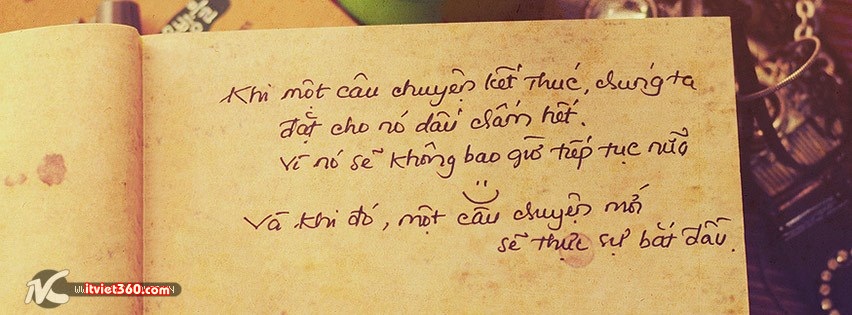 Khi một câu chuyện kết thúc, chúng ta
đặt cho nó dấu chấm hết.
Vì nó sẽ không bao giờ tiếp tục nữa
Và khi đó, một câu chuyện mới
sẽ thực sự bắt đầu.
itviet360.com